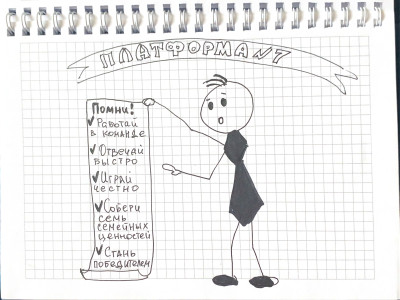 ПЛАТФОРМА№7
Помни!
✓Работай
в команде
✓Отвечай
быстро
✓Играй
честно
✓Собери
семь
семейных
ценностей
✓Стань
победителем